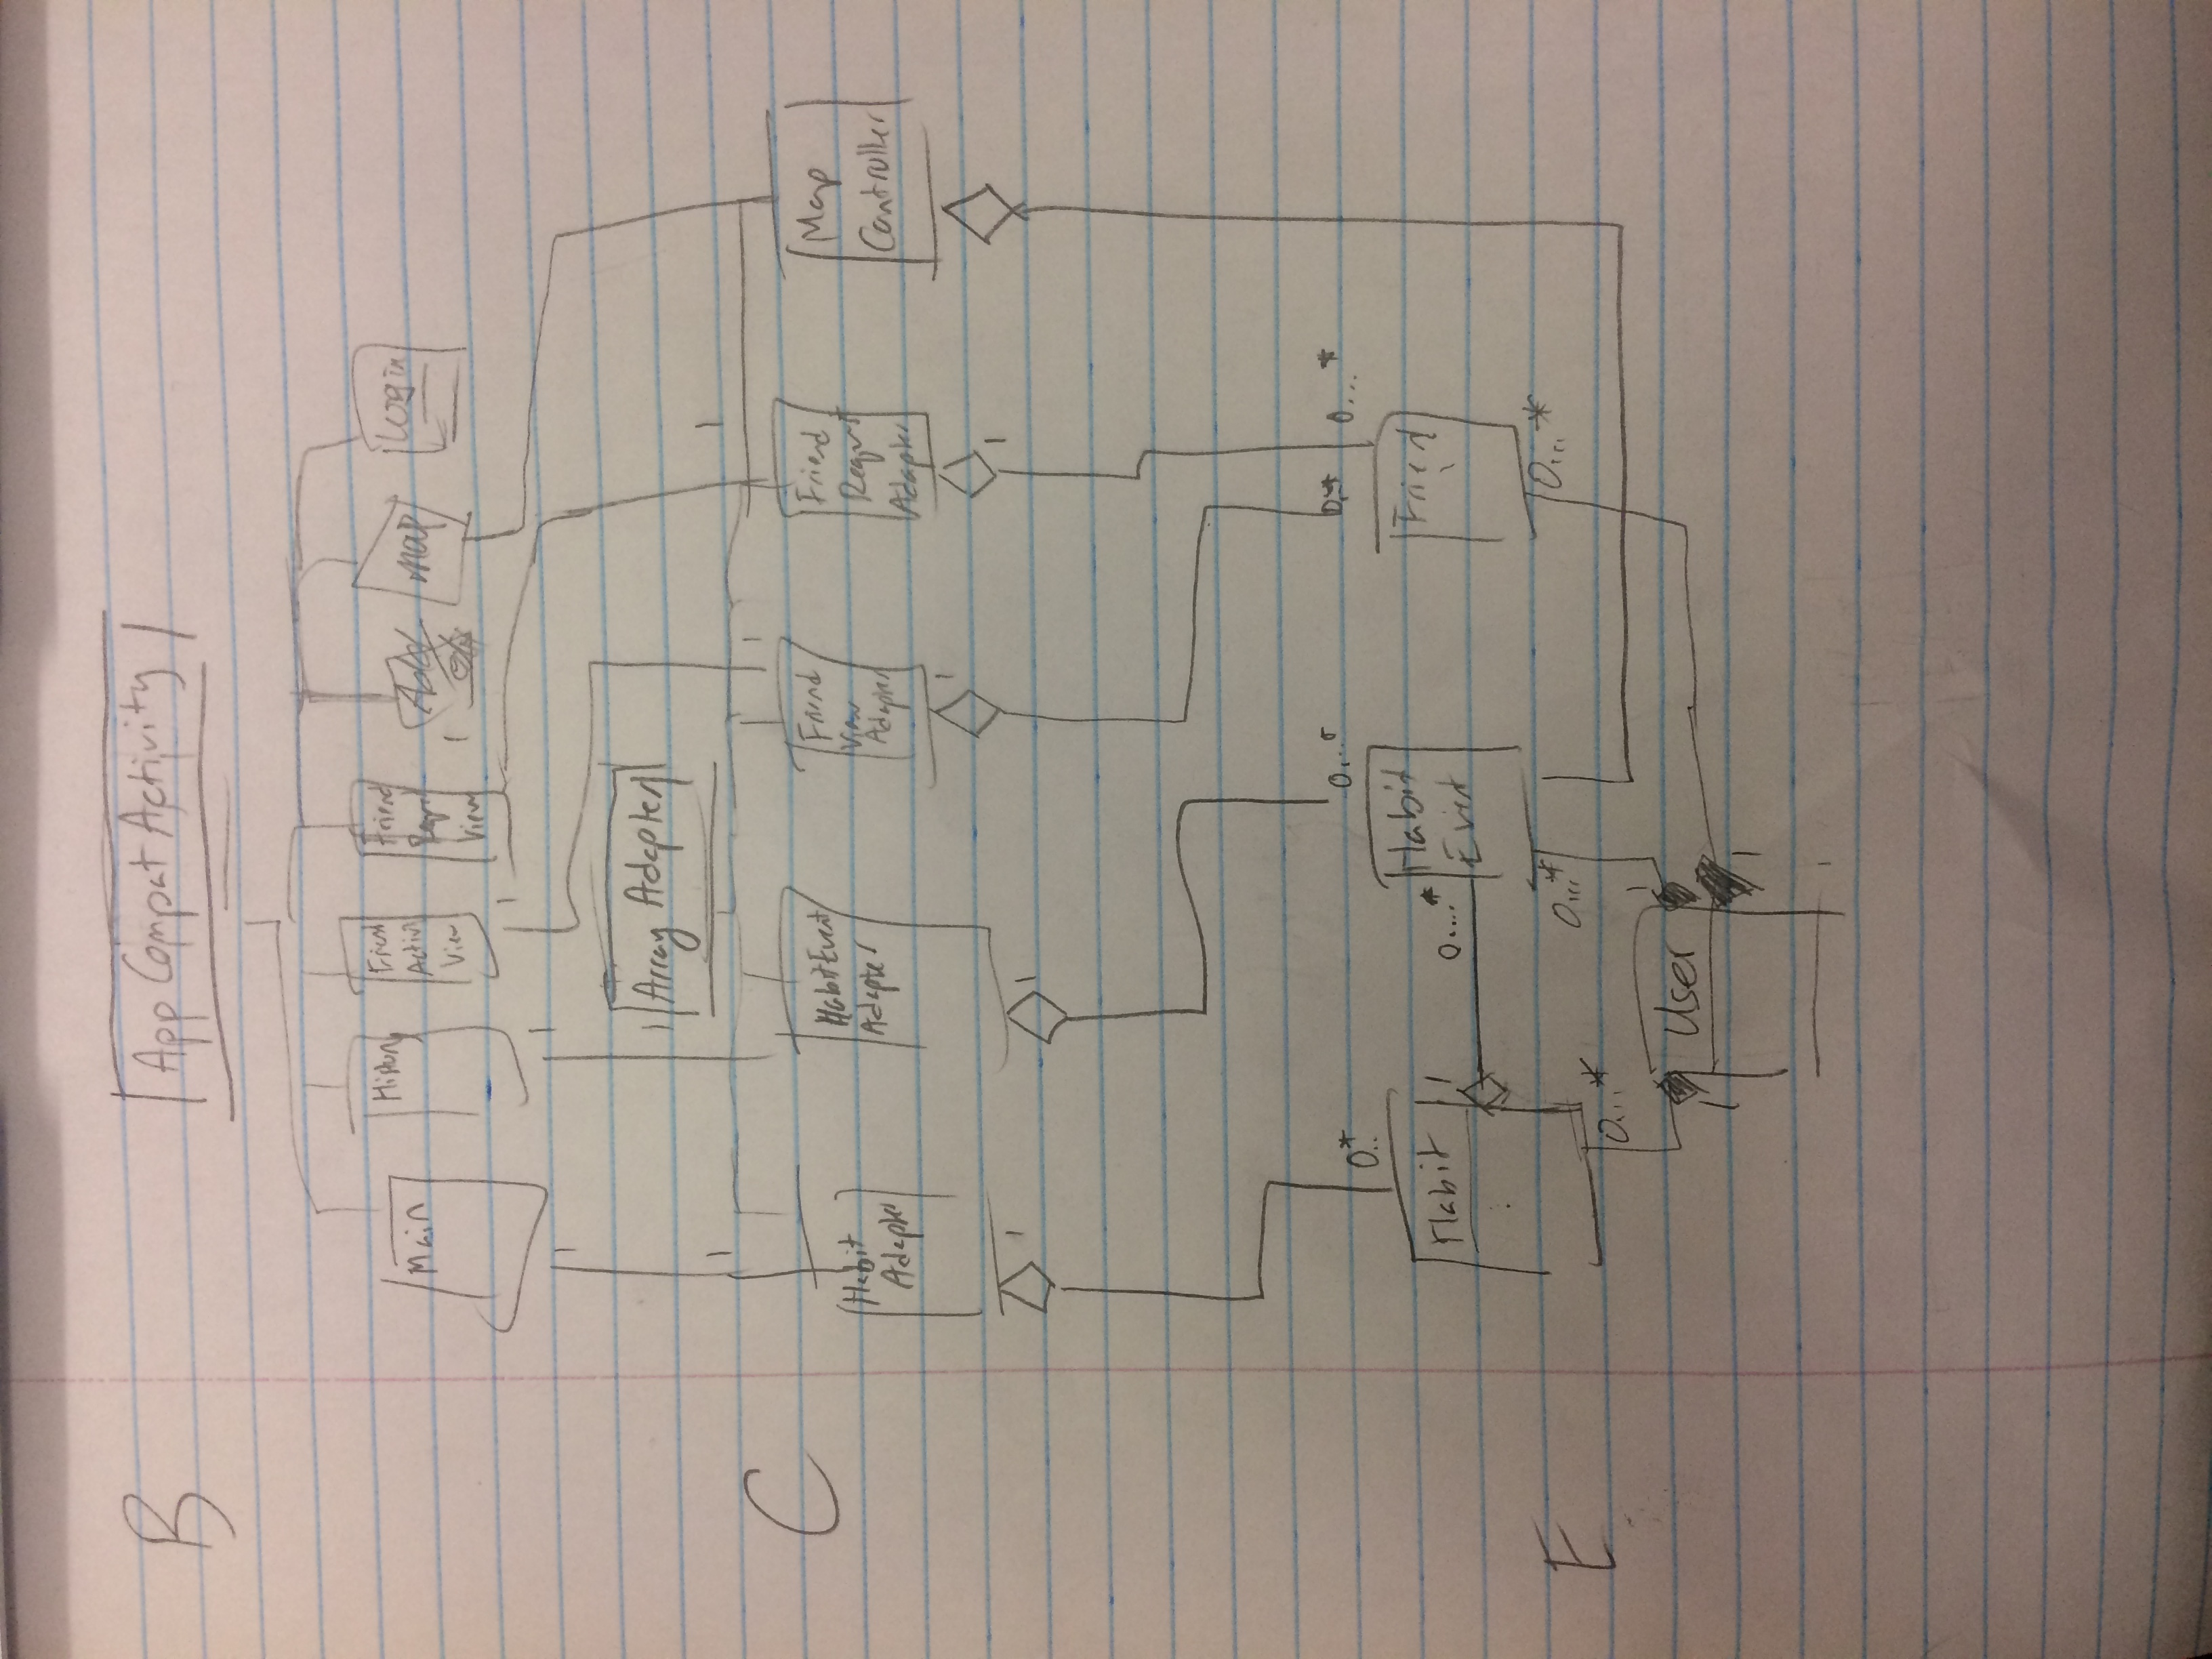 B
App Compat Activity
Main
History
Friend
Activi
View
Friend
Reqst
View
1
Add
Map
Login
1
1
1
1
Array Adapter
1
1
1
C
Habit
Adapter
HabitEvent
Adapter
Friend
View
Adapter
Friend
Request
Adapter
Map
Controller
1
1
1
1
0..*
0...*
0..*
0...*
Habit
1
0....*
Habit
Event
Friend
E
0...*
0...*
0...*
User
1
1
1